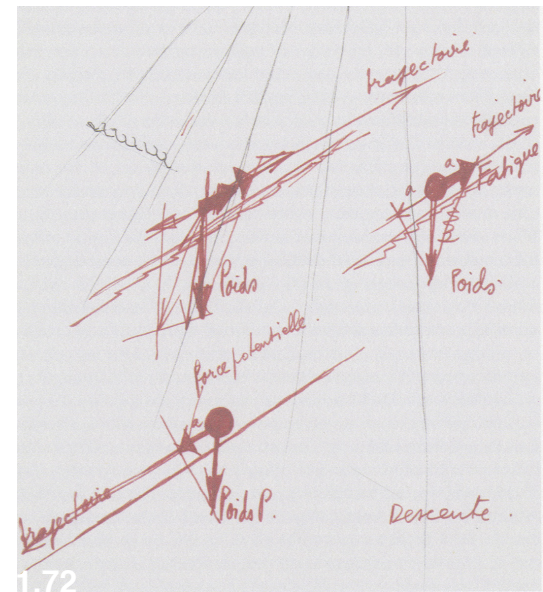 trajectoire
trajectoire
a
a
Fatigue
Poids
Poids.
Force potentielle.
a
Poids P.
trajectoire
Descente.
1.72